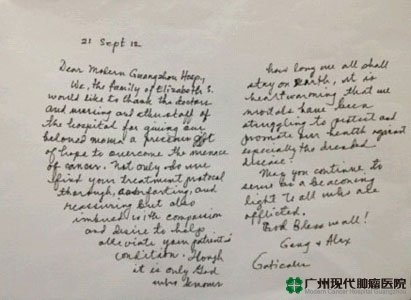 21 Sept 12
Dear Modern Guangzhou Hosp,
We, the family of Elizabeth S.
would like to thank the doctors
and nursing and other staff of
the hospital for giving our
beloved mama a precious gift
of hope to overcome the menace
of cancer. Not only do we
find your treatment protocol
thorough, comforting, and
reassuring but also
imbued with compassion
and desire to help
alleviate your patient's
condition. Though
it is only God
who knows
how long we all shall
stay on earth, it is
heartwarming that we
mortals have been
struggling to protect and
promote our health against
especially the dreaded
disease!
May you continue to
serve as a beaconing
light to all who are
afflicted.
God Bless us all!
Geng & Alex
广州现代肿瘤医院
Modern Cancer Hospital Guangzhou